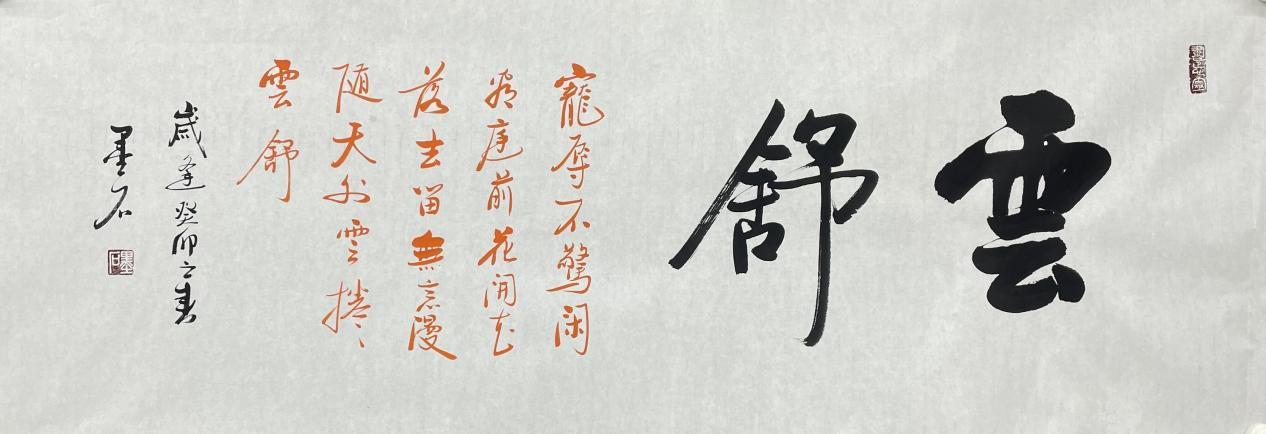 雲舒
寵辱不驚閑
看庭前花開花
落去留無意漫
随天外雲捲
雲舒
歲逢癸卯之春
墨石
墨石